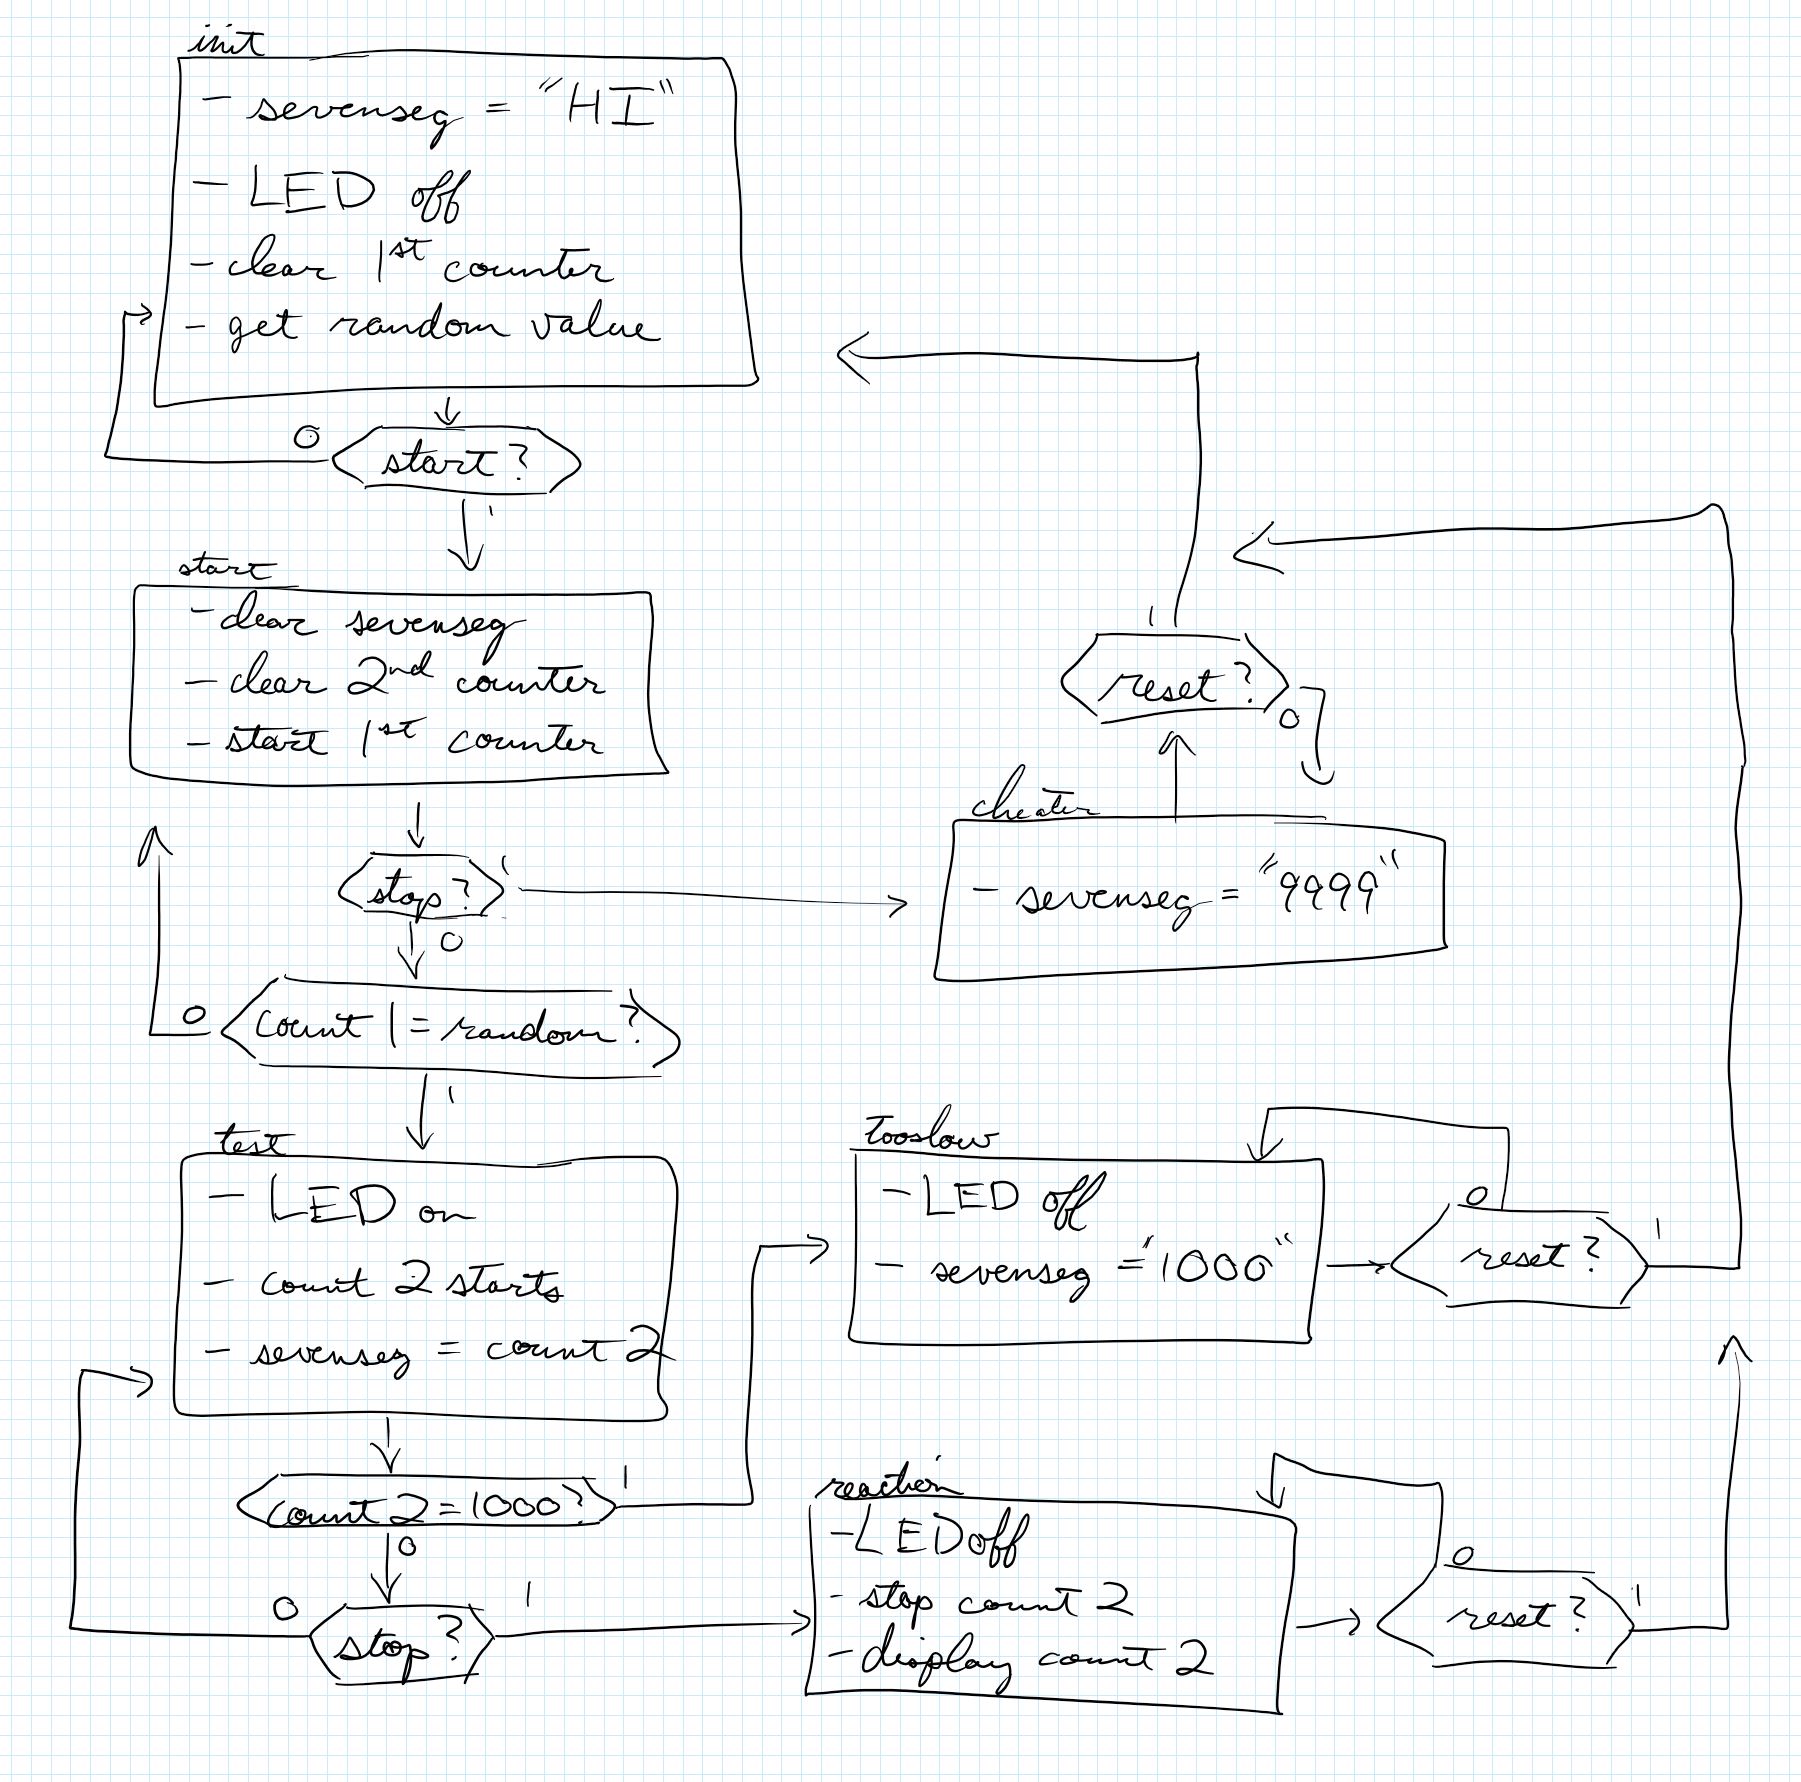 init
- sevenseg = "HI"
- LED off
- clear 1st counter
- get random value
0
start?
1
start
- clear sevenseg
- clear 2nd counter
- start 1st counter
stop?
1
0
count 1 = random?
0
1
test
- LED on
- count 2 starts
- sevenseg = count 2
count 2 = 1000?
1
0
stop?
0
1
1
reset?
0
cheater
- sevenseg = "9999"
tooslow
- LED off
- sevenseg = "1000"
0
reset?
1
reaction
- LED off
- stop count 2
- display count 2
0
reset?
1